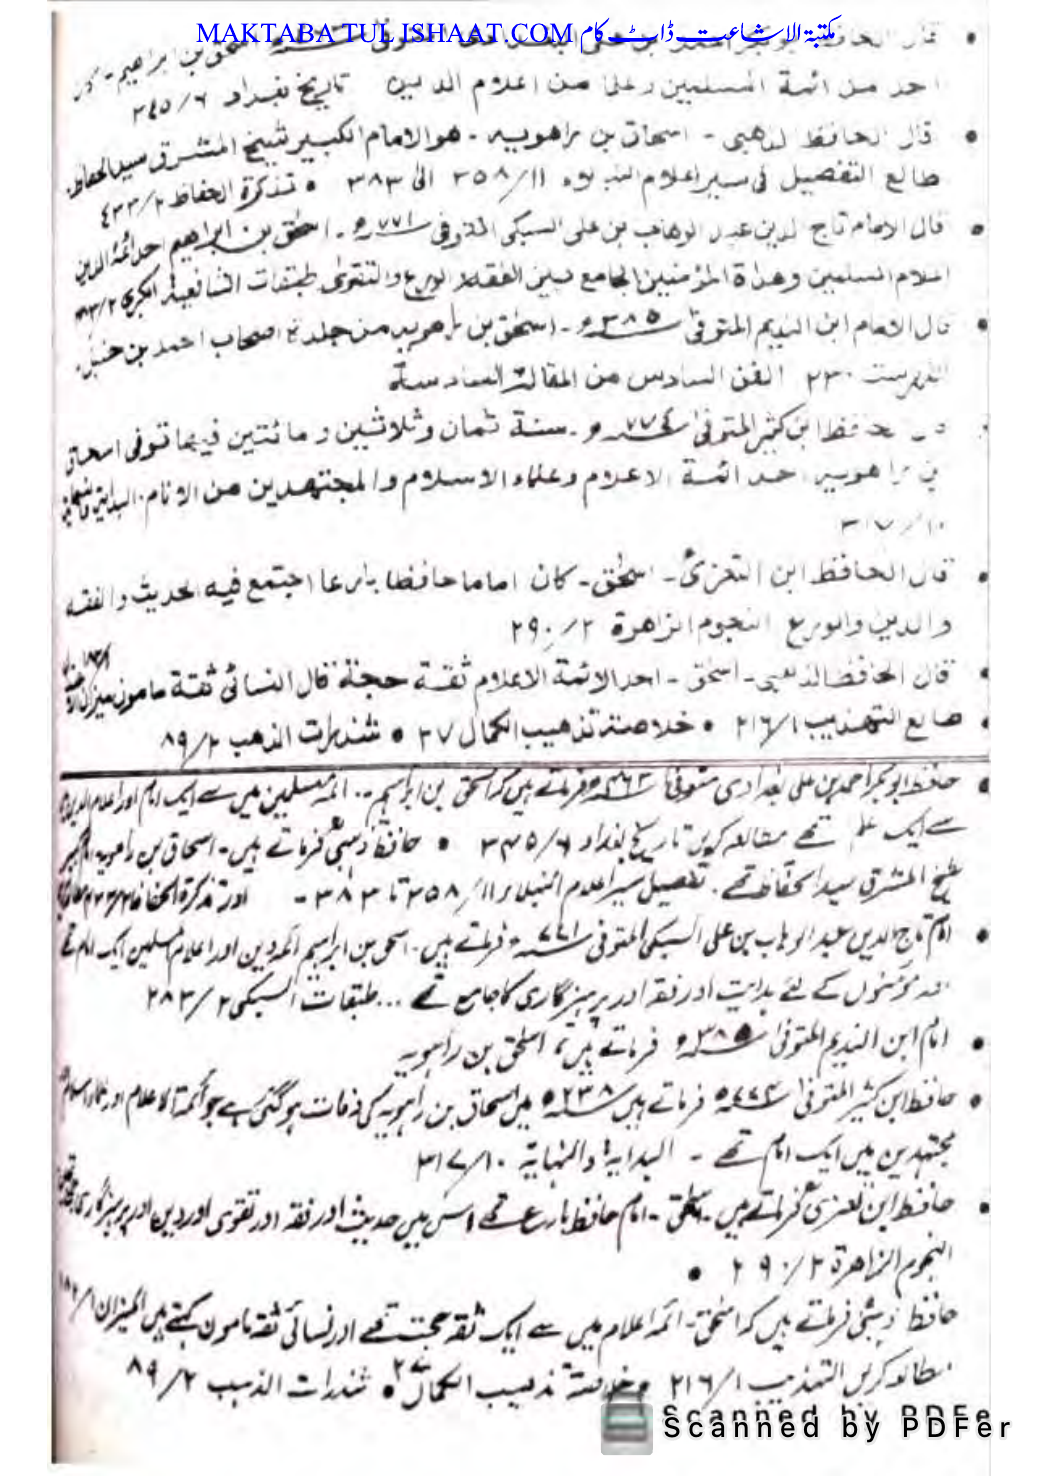 MAKTABA TUL ISHAAT.COM مکتبۃ الاشاعت ڈاٹ کام
احد من ائمة المسلمین وعلما من اعلام الدین تاریخ بغداد ۳٤٥/٦
قال الحافظ الذهبی - اسحاق بن راهویه - هو الامام الکبیر شیخ المشرق سید الحفاظ.
طالع التفصیل فی سیر اعلام النبلاء ۳٥۸/۱۱ الی ۳۸۳ • تذکرة الحفاظ ٤۳۳/۲
قال الامام تاج الدین عبد الوهاب بن علی السبکی المتوفی ۷۷۱ھ - اسحٰق بن ابراهیم احد ائمة الدین
اعلام المسلمین وهداة المؤمنین الجامع بین الفقه والورع والتقوی طبقات الشافعیة الکبری
قال الامام ابن الندیم المتوفی ۳۸۵ھ - اسحٰق بن راهویه من جلة اصحاب احمد بن حنبل.
الفهرست ۲۳۰ الفن السادس من المقالة السادسة
حافظ ابن کثیر المتوفی ۷۷٤ھ - سنة ثمان وثلاثین ومائتین فیها توفی اسحاق
بن راهویه احد ائمة الاعلام وعلماء الاسلام والمجتهدین من الانام. البدایة والنهایة
۳۱۷/۱۰
قال الحافظ ابن التغری - اسحٰق - کان اماما حافظا بارعا اجتمع فیه الحدیث والفقه
والدین والورع النجوم الزاهرة ۲۹۰/۲
قال الحافظ الذهبی - اسحٰق - احد الائمة الاعلام ثقة حجة قال النسائی ثقة مامون
طالع التهذیب ۲۱٦/۱ • خلاصة تذهیب الکمال ۲۷ • شذرات الذهب ۸۹/۲
حافظ ابوبکر احمد بن علی بغدادی متوفی ۴۶۳ھ فرماتے ہیں کہ اسحٰق بن ابراہیم - ائمہ مسلمین میں سے ایک امام اور اعلام الدین
سے ایک علم تھے مطالعہ کریں تاریخ بغداد ۳۴۵/۶ • حافظ ذہبی فرماتے ہیں - اسحاق بن راہویہ امام کبیر
شیخ المشرق سید الحفاظ تھے. تفصیل سیر اعلام النبلاء ۳۵۸/۱۱ تا ۳۸۳ - اور تذکرة الحفاظ
امام تاج الدین عبد الوہاب بن علی السبکی المتوفی ۷۷۱ھ فرماتے ہیں - اسحٰق بن ابراہیم ائمہ دین اور اعلام مسلمین ایک امام تھے
مؤمنوں کے لئے ہدایت اور فقہ اور پرہیزگاری کا جامع تھے ... طبقات السبکی ۲۸۳/۲
امام ابن الندیم المتوفی ۳۸۵ھ فرماتے ہیں، اسحٰق بن راہویہ
حافظ ابن کثیر المتوفی ۷۷۴ھ فرماتے ہیں ۲۳۸ھ میں اسحاق بن راہویہ کی وفات ہوگئی ہے جو ائمۃ الاعلام اور علماء اسلام
مجتہدین میں ایک امام تھے - البدایة والنهایة ۳۱۷/۱۰
حافظ ابن تغری فرماتے ہیں - اسحٰق - امام حافظ بارع تھے اس میں حدیث اور فقہ اور تقوی اور دین اور پرہیزگاری
النجوم الزاهرة ۲۹۰/۲ •
حافظ ذہبی فرماتے ہیں کہ اسحٰق - ائمہ اعلام میں سے ایک ثقہ حجت تھے اور نسائی ثقہ مامون کہتے ہیں المیزان
مطالعہ کریں التہذیب ۲۱۶/۱ • خلاصة تذہیب الکمال ۲۷ • شذرات الذہب ۸۹/۲
Scanned by PDFer